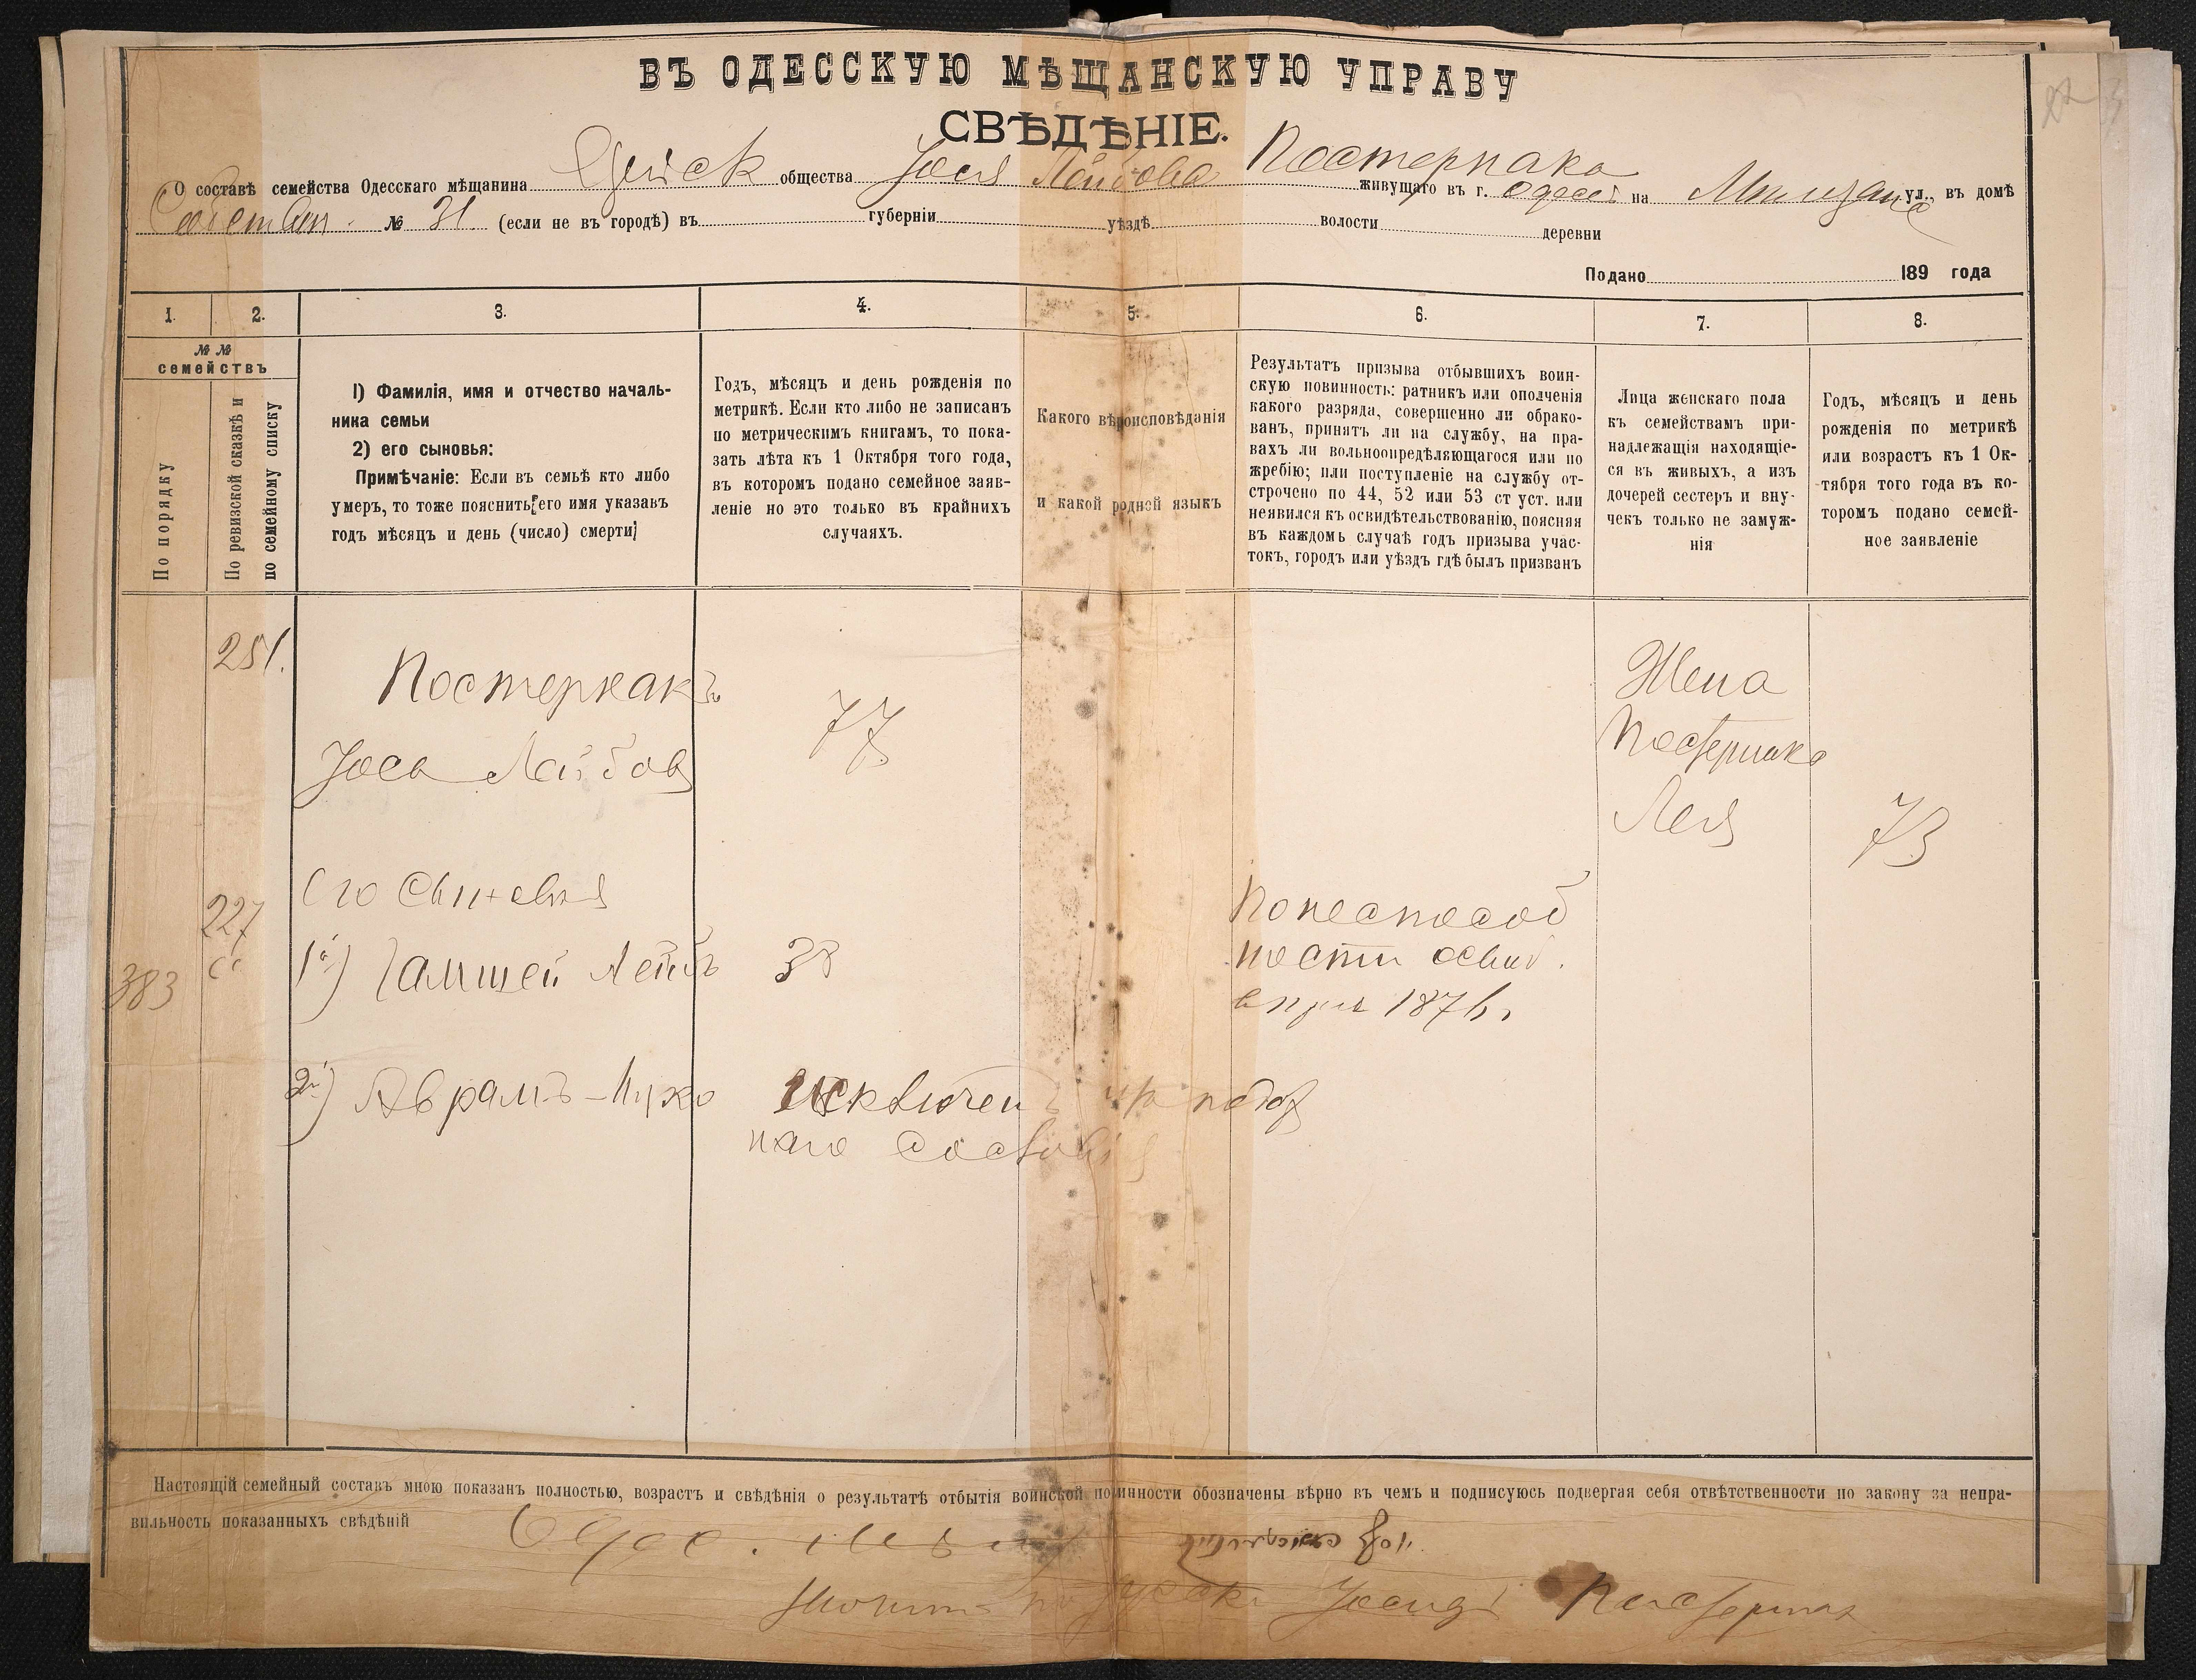 ВЪ ОДЕССКУЮ МѢЩАНСКУЮ УПРАВУ
СВѢДѢНІЕ.
О составѣ семейства Одесскаго мѣщанина общества Іося Лейбова Постернака живущаго въ г. Одессѣ на ул., въ домѣ
№ 31. (если не въ городѣ) въ губерніи уѣздѣ волости деревни
Подано 189 года
1. 2. 3. 4. 5. 6. 7. 8.
№ №
семействъ
По порядку
По ревизской сказкѣ и
по семейному списку
1) Фамилія, имя и отчество началь-
ника семьи
2) его сыновья:
Примѣчаніе: Если въ семьѣ кто либо
умеръ, то тоже пояснить его имя указавъ
годъ мѣсяцъ и день (число) смерти
Годъ, мѣсяцъ и день рожденія по
метрикѣ. Если кто либо не записанъ
по метрическимъ книгамъ, то пока-
зать лѣта къ 1 Октября того года,
въ которомъ подано семейное заяв-
леніе но это только въ крайнихъ
случаяхъ.
Какого вѣроисповѣданія
и какой родной языкъ
Результатъ призыва отбывшихъ воин-
скую повинность: ратникъ или ополченія
какого разряда, совершенно ли обрако-
ванъ, принятъ ли на службу, на пра-
вахъ ли вольноопредѣляющагося или по
жребію; или поступленіе на службу от-
строчено по 44, 52 или 53 ст уст. или
неявился къ освидѣтельствованію, поясняя
въ каждомъ случаѣ годъ призыва учас-
токъ, городъ или уѣздъ гдѣ былъ призванъ
Лица женскаго пола
къ семействамъ при-
надлежащія находящіе-
ся въ живыхъ, а изъ
дочерей сестеръ и вну-
чекъ только не замуж-
нія
Годъ, мѣсяцъ и день
рожденія по метрикѣ
или возрастъ къ 1 Ок-
тября того года въ ко-
торомъ подано семей-
ное заявленіе
251.
Постернакъ
77
Жена
Іось Лейбов
Постернака
Лея
73
Его Сыновья
227
По неспособ
1й) Гамшей Лейбъ 38
ности освид.
383
1876
2й) Аврамъ-Ицко Исключенъ
наго сословія
Настоящій семейный составъ мною показан полностью, возрастъ и свѣдѣнія о результатѣ отбытія воинской повинности обозначены вѣрно въ чемъ и подписуюсь подвергая себя отвѣтственности по закону за непра-
вильность показанныхъ свѣдѣній
Постернак